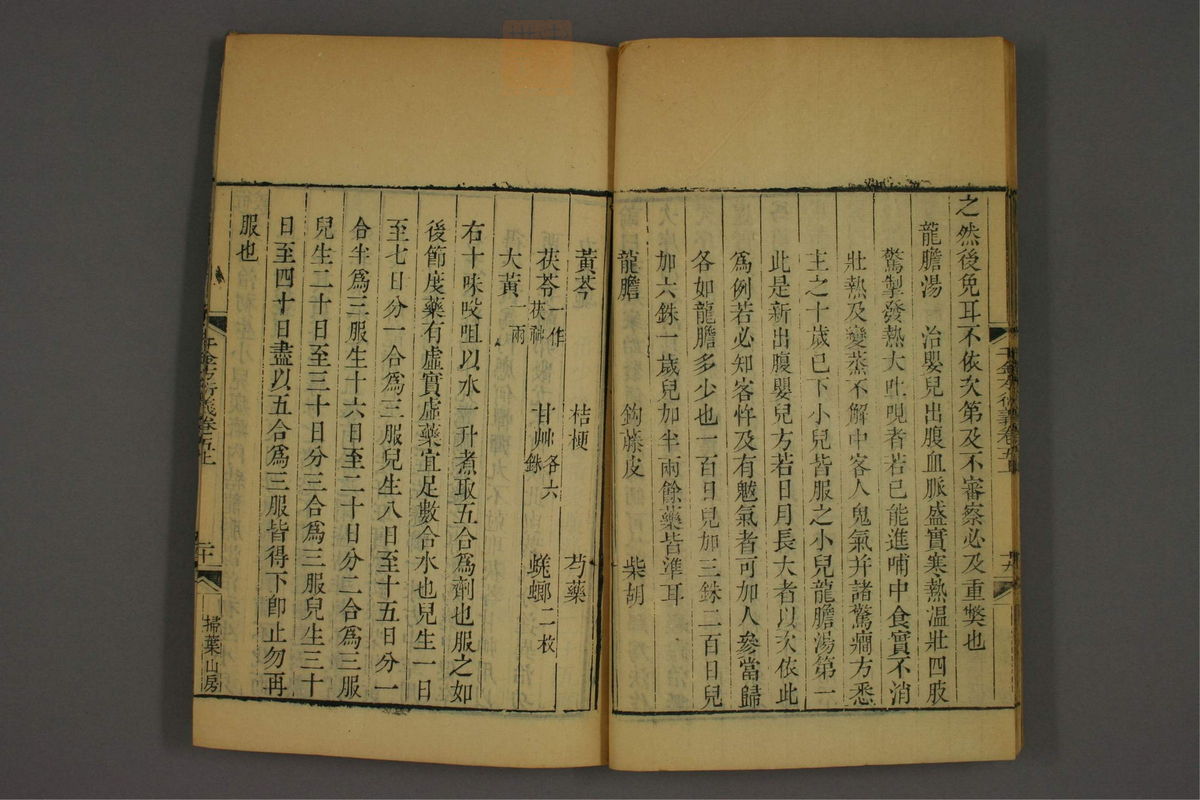 之然後免耳不依次第及不審察必及重獘也
龍膽湯　治嬰兒出腹血脈盛實寒熱溫壯四肢
驚掣發熱大吐哯者若已能進哺中食實不消
壯熱及變蒸不解中客人鬼氣幷諸驚癇方悉
主之十歲已下小兒皆服之小兒龍膽湯第一
此是新出腹嬰兒方若日月長大者以次依此
爲例若必知客忤及有魃氣者可加人參當歸
各如龍膽多少也一百日兒加三銖二百日兒
加六銖一歲兒加半兩餘藥皆準耳
龍膽　鈎藤皮　柴胡
黃芩　桔梗　芍藥
茯苓一作茯神　甘艸各六銖　蜣螂二枚
大黃一兩
右十味㕮咀以水一升煮取五合爲劑也服之如
後節度藥有虛實虛藥宜足數合水也兒生一日
至七日分一合爲三服兒生八日至十五日分一
合半爲三服生十六日至二十日分二合爲三服
兒生二十日至三十日分三合爲三服兒生三十
日至四十日盡以五合爲三服皆得下卽止勿再
服也
千金方衍義卷五上
二十
掃葉山房